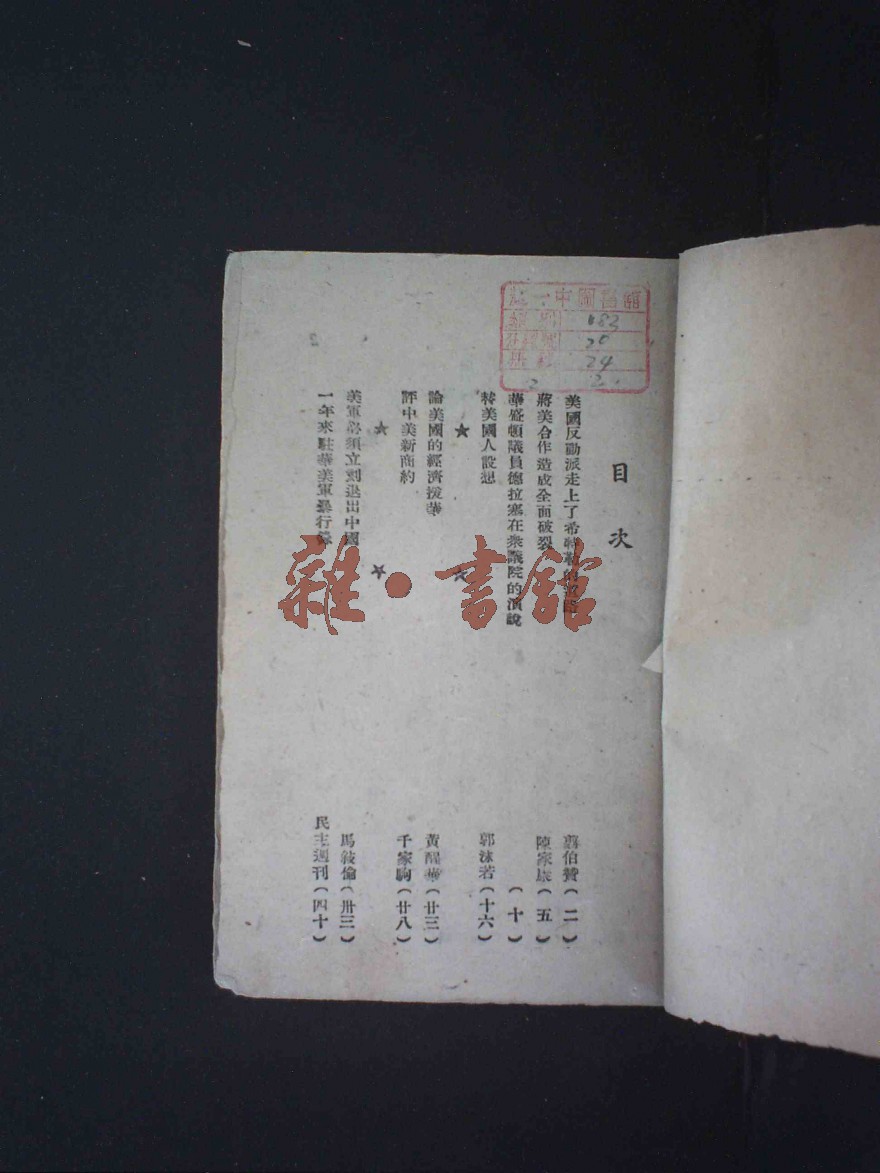 中圖書館
183
20
24
2 2
目次
美國反動派走上了希特勒的道路 翦伯贊(二)
蔣美合作造成全面破裂 陳家康(五)
華盛頓議員德拉塞在衆議院的演說 (十)
替美國人設想 郭沫若(十六)
★ ★
論美國的經濟援華 黃醒華(廿三)
評中美新商約 千家駒(廿八)
★ ★
美軍必須立刻退出中國 馬敍倫(卅三)
一年來駐華美軍暴行錄 民主週刊(四十)
雜·書館